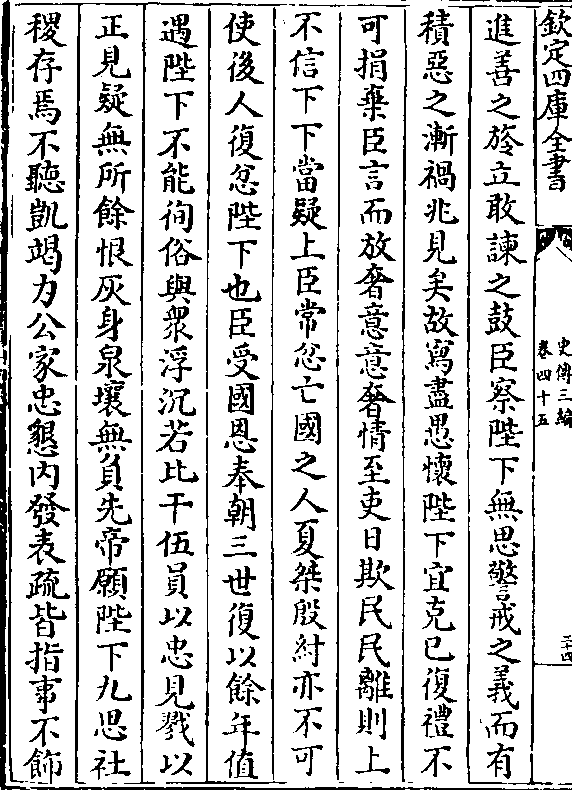 欽定四庫全書
史傳三編
卷四十五
二十四
進善之旍立敢諫之鼓臣察陛下無思警戒之義而有
積惡之漸禍兆見矣故寫盡愚懷陛下宜克已復禮不
可捐棄臣言而放奢意意奢情至吏日欺民民離則上
不信下下當疑上臣常忿亡國之人夏桀殷紂亦不可
使後人復忿陛下也臣受國恩奉朝三世復以餘年值
遇陛下不能徇俗與衆浮沉若比干伍員以忠見戮以
正見疑無所餘恨灰身泉壤無負先帝願陛下九思社
稷存焉不聽凱竭力公家忠懇内發表疏皆指事不飾